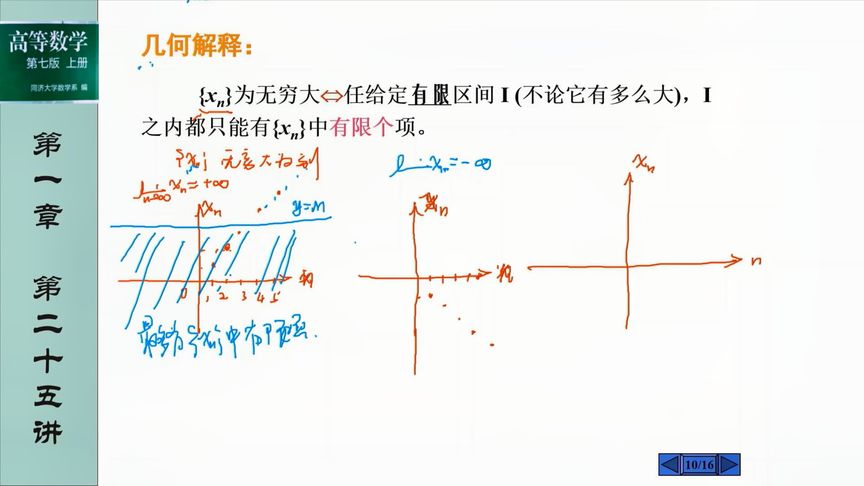 高等数学
第七版 上册
同济大学数学系 编
第一章 第二十五讲
几何解释:
{xₙ}为无穷大⇔任给定有限区间 I (不论它有多么大), I
之内都只能有{xₙ}中有限个项。
lim xₙ = +∞
n→∞
xₙ
y=M
0 1 2 3 4 5
lim xₙ = -∞
xₙ
xₙ
n
10/16